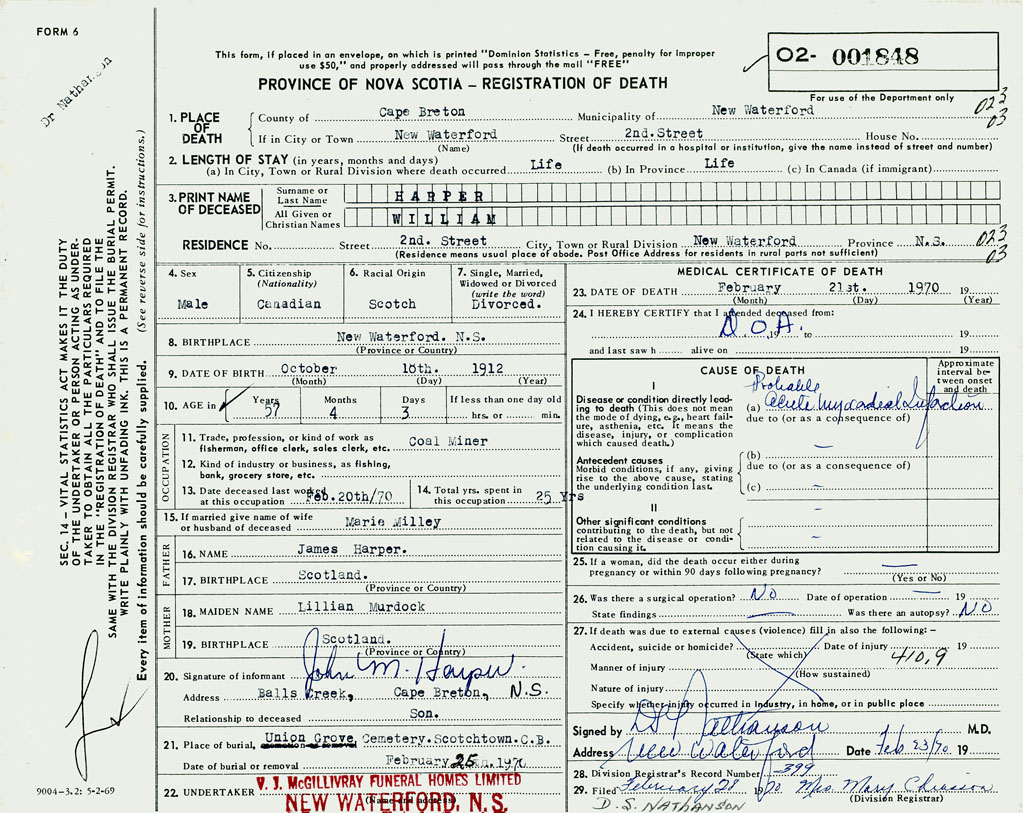 FORM 6
Dr Nathanson
This form, if placed in an envelope, on which is printed "Dominion Statistics — Free, penalty for improper
use $50," and properly addressed will pass through the mail "FREE"
PROVINCE OF NOVA SCOTIA — REGISTRATION OF DEATH
02- 001848
For use of the Department only
023
03
1. PLACE OF DEATH
County of Cape Breton Municipality of New Waterford
If in City or Town New Waterford Street 2nd. Street House No.
(Name) (If death occurred in a hospital or institution, give the name instead of street and number)
2. LENGTH OF STAY (in years, months and days)
(a) In City, Town or Rural Division where death occurred Life (b) In Province Life (c) In Canada (if immigrant)
3. PRINT NAME OF DECEASED
Surname or Last Name HARPER
All Given or Christian Names WILLIAM
RESIDENCE No. Street 2nd. Street City, Town or Rural Division New Waterford Province N.S.
(Residence means usual place of abode. Post Office Address for residents in rural parts not sufficient)
023
03
4. Sex
Male
5. Citizenship
(Nationality)
Canadian
6. Racial Origin
Scotch
7. Single, Married,
Widowed or Divorced
(write the word)
Divorced.
8. BIRTHPLACE New Waterford. N.S.
(Province or Country)
9. DATE OF BIRTH October 18th. 1912
(Month) (Day) (Year)
10. AGE in
Years Months Days If less than one day old
57 4 3 hrs. or min.
OCCUPATION
11. Trade, profession, or kind of work as
fisherman, office clerk, sales clerk, etc. Coal Miner
12. Kind of industry or business, as fishing,
bank, grocery store, etc.
13. Date deceased last worked
at this occupation Feb.20th/70
14. Total yrs. spent in
this occupation 25 Yrs
15. If married give name of wife
or husband of deceased Marie Milley
FATHER
16. NAME James Harper.
17. BIRTHPLACE Scotland.
(Province or Country)
MOTHER
18. MAIDEN NAME Lillian Murdock
19. BIRTHPLACE Scotland.
(Province or Country)
20. Signature of informant John M. Harper.
Address Balls Creek, Cape Breton, N.S.
Relationship to deceased Son.
21. Place of burial, Union Grove Cemetery.Scotchtown.C.B.
Date of burial or removal February 25 1970
22. UNDERTAKER V. J. McGILLIVRAY FUNERAL HOMES LIMITED
(Name and address)
NEW WATERFORD, N. S.
MEDICAL CERTIFICATE OF DEATH
23. DATE OF DEATH February 21st. 1970 19
(Month) (Day) (Year)
24. I HEREBY CERTIFY that I attended deceased from:
D.O.A. 19 to 19
and last saw h alive on 19
CAUSE OF DEATH
Approximate
interval be-
tween onset
and death
I
Disease or condition directly lead-
ing to death (This does not mean
the mode of dying, e.g., heart fail-
ure, asthenia, etc. It means the
disease, injury, or complication
which caused death.)
Probable
(a) Acute Myocardial Infarction
due to (or as a consequence of)
Antecedent causes
Morbid conditions, if any, giving
rise to the above cause, stating
the underlying condition last.
(b)
due to (or as a consequence of)
(c)
II
Other significant conditions
contributing to the death, but not
related to the disease or condi-
tion causing it.
25. If a woman, did the death occur either during
pregnancy or within 90 days following pregnancy?
(Yes or No)
26. Was there a surgical operation? NO Date of operation 19
State findings Was there an autopsy? NO
27. If death was due to external causes (violence) fill in also the following:—
Accident, suicide or homicide? Date of injury 19
(State which) 410,9
Manner of injury
(How sustained)
Nature of injury
Specify whether injury occurred in industry, in home, or in public place
Signed by D S Nathanson M.D.
Address New Waterford Date Feb 23/70 19
28. Division Registrar's Record Number 399
29. Filed February 28 1970 Mrs Mary Chiasson
(Division Registrar)
D. S. NATHANSON
SEC. 14 — VITAL STATISTICS ACT MAKES IT THE DUTY
OF THE UNDERTAKER OR PERSON ACTING AS UNDER-
TAKER TO OBTAIN ALL THE PARTICULARS REQUIRED
IN THE "REGISTRATION OF DEATH" AND TO FILE THE
SAME WITH THE DIVISION REGISTRAR WHO SHALL ISSUE THE BURIAL PERMIT.
WRITE PLAINLY WITH UNFADING INK. THIS IS A PERMANENT RECORD.
Every item of information should be carefully supplied. (See reverse side for instructions.)
9004—3.2: 5-2-69